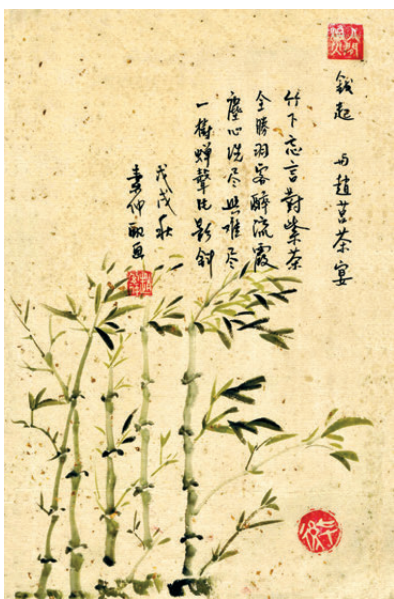 錢起 与趙莒茶宴
竹下忘言對紫茶
全勝羽客醉流霞
塵心洗尽興難尽
一樹蟬聲片影斜
戊戌秋
仲画